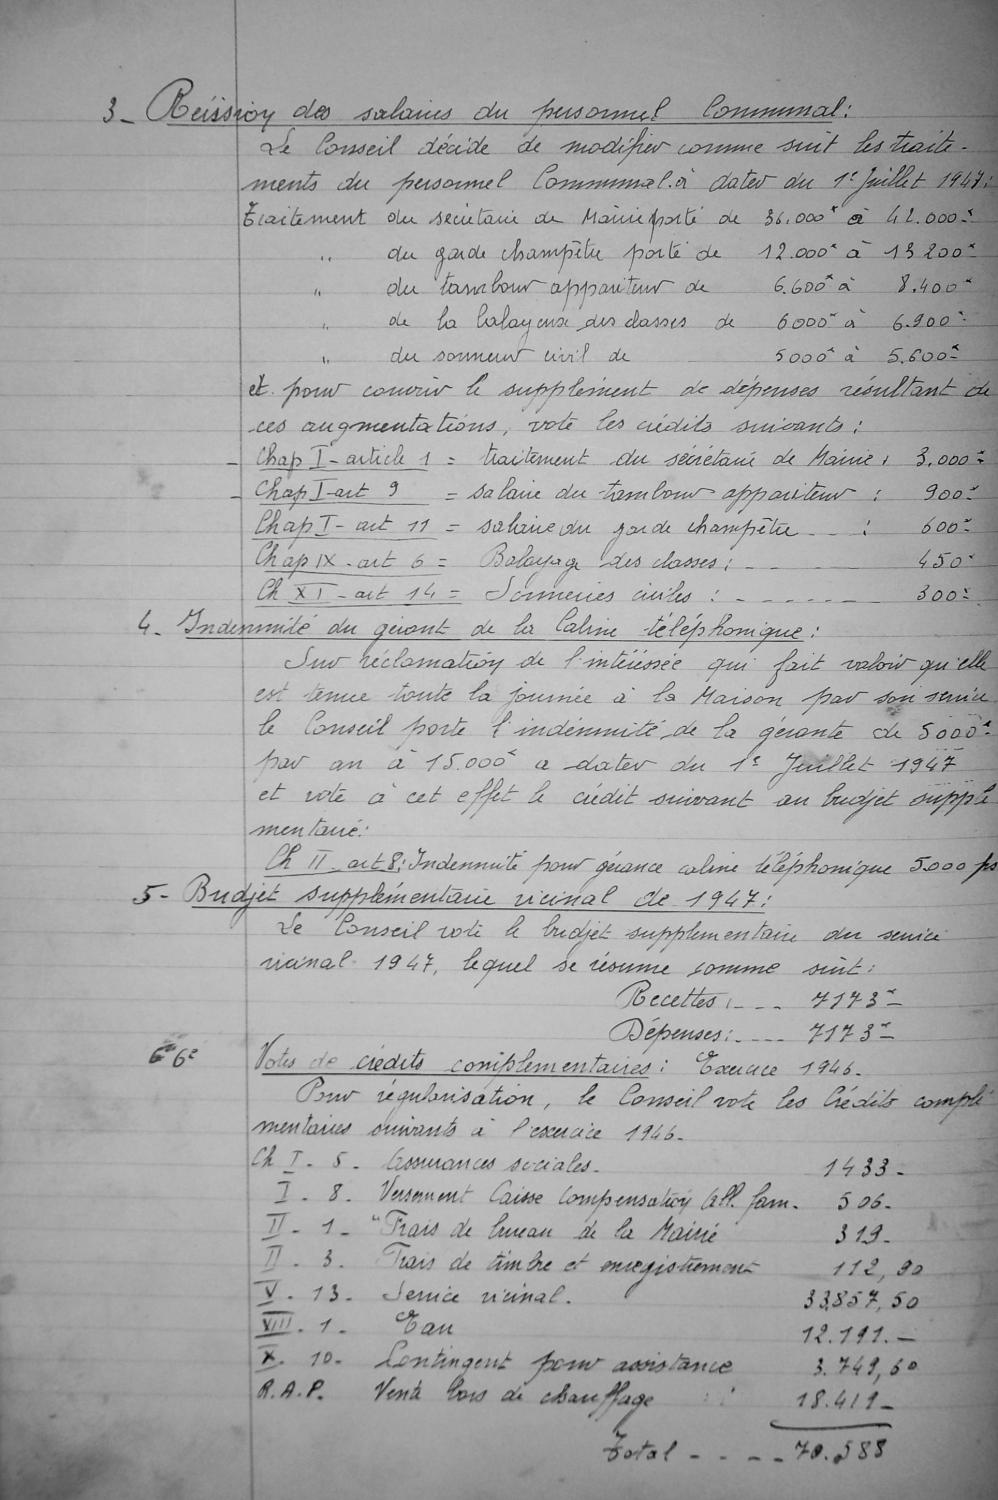 3 - Reïssion des salaires du personnel Communal:
Le Conseil décide de modifier comme suit les traite-
ments du personnel Communal à dater du 1er Juillet 1947:
Traitement du secrétaire de Mairie porté de 36.000 à 42.000
" du garde champêtre porté de 12.000 à 13 200
" du tambour appariteur de 6.600 à 8.400
" de la balayeuse des classes de 6000 à 6.900
" du sonneur civil de 5000 à 5.600
et pour couvrir le supplément de dépenses résultant de
ces augmentations, vote les crédits suivants:
- Chap I - article 1 = traitement du sécrétaire de Mairie: 3.000
- Chap I - art 9 = salaire du tambour appariteur: 900
Chap I - art 11 = salaire du garde champêtre - - : 600
Chap IX - art 6 = Balayage des classes: - - - - 450
Ch XI - art 14 = Sonneries civiles: - - - - - - 300
4 - Indemnité du gérant de la Cabine téléphonique:
Sur réclamation de l'intéressée qui fait valoir qu'elle
est tenue toute la journée à la Maison par son service
le Conseil porte l'indemnité de la gérante de 5000
par an à 15.000 a dater du 1er Juillet 1947
et vote à cet effet le crédit suivant au budjet supplé
mentaire:
Ch II - art 8: Indemnité pour gérance cabine téléphonique 5.000 frs
5 - Budjet supplémentaire vicinal de 1947:
Le Conseil vote le budjet supplementaire du service
vicinal 1947, lequel se résume comme suit:
Recettes: - - - 7173
Dépenses: - - - 7173
6e 6e Votes de crédits complementaires: Exercice 1946.
Pour régularisation, le Conseil vote les Crédits complé
mentaires suivants à l'exercice 1946.
Ch I - 5 - Assurances sociales. 1433 -
I - 8 - Versement Caisse Compensation All. fam. 506 -
II - 1 - "Frais de bureau de la Mairie 319 -
II - 3 - Frais de timbre et enregistrement 112,90
V - 13 - Service vicinal. 33,857,50
VIII - 1 - Eau 12.191. -
X - 10 - Contingent pour assistance 3.749,60
R.A.P. Vente bois de chauffage 18.419 -
Total - - - - 70.588